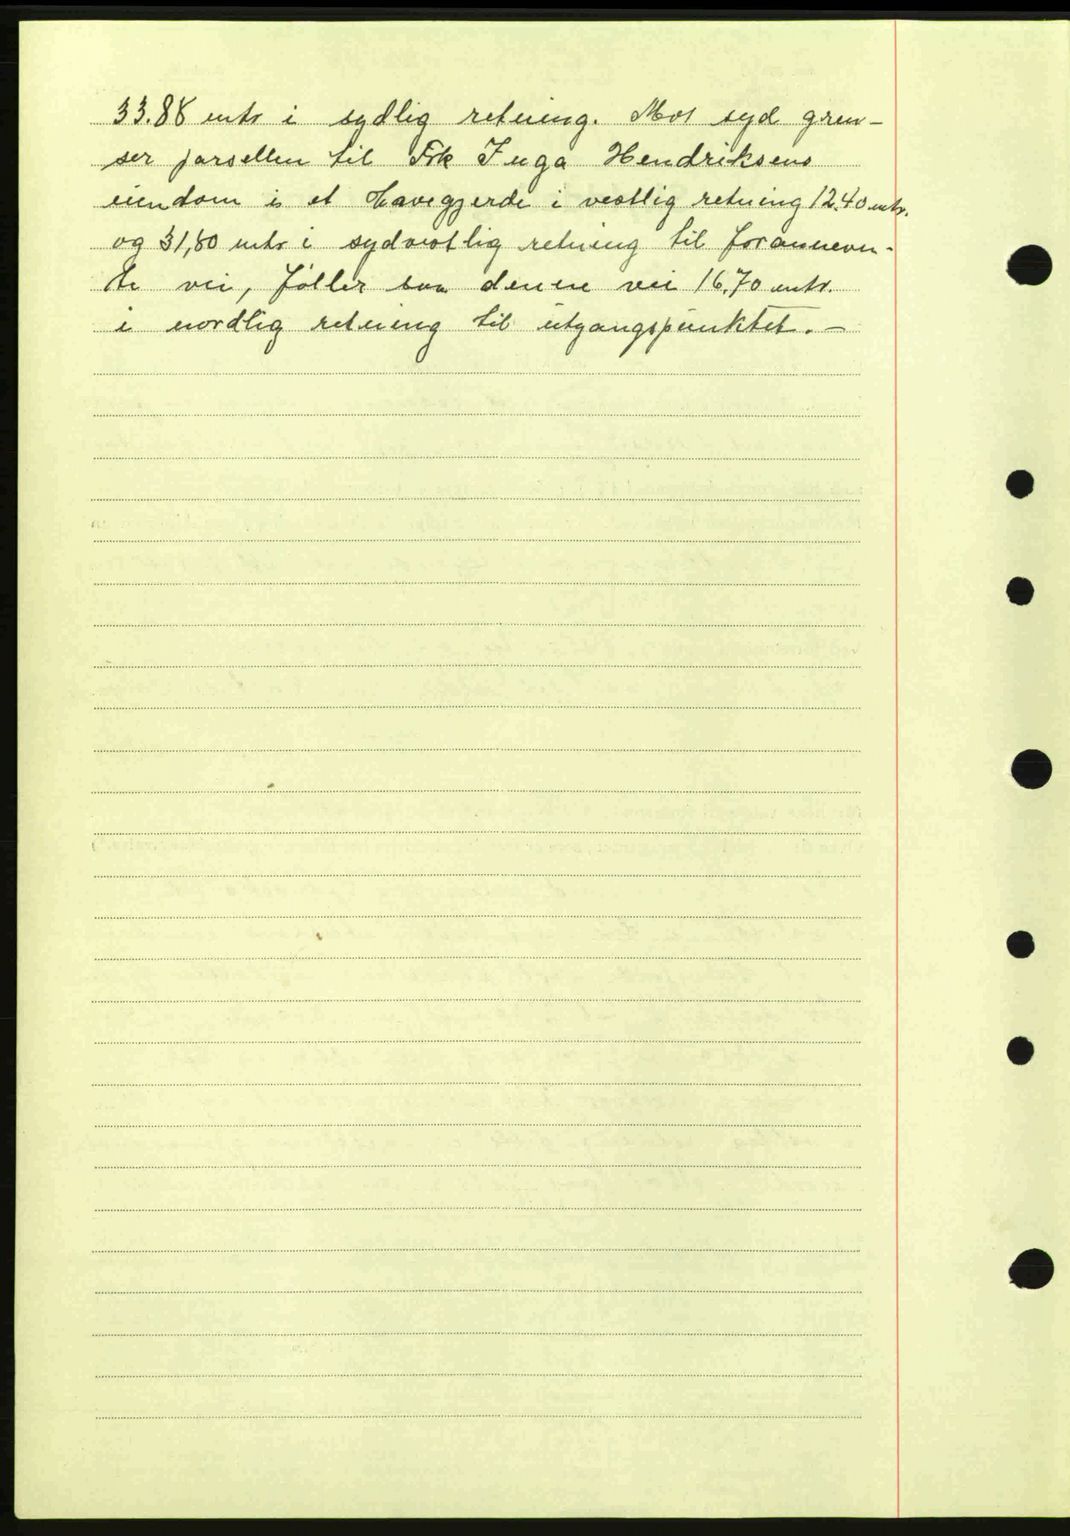 33.88 mtr i sydlig retning. Mot syd gren-
ser parsellen til Frk Inga Hendriksens
eiendom i et havegjerde i vestlig retning 12.40 mtr.
og 31,80 mtr i sydvestlig retning til forannevn-
te vei, følger saa denne vei 16.70 mtr.
i nordlig retning til utgangspunktet. —